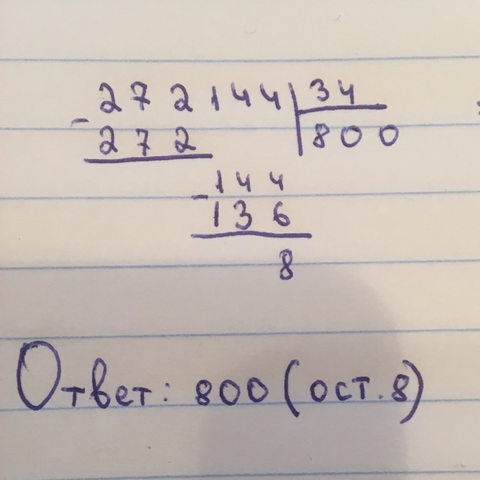 - 272144 | 34
272 | 800
- 144
136
8
Ответ: 800 (ост. 8)